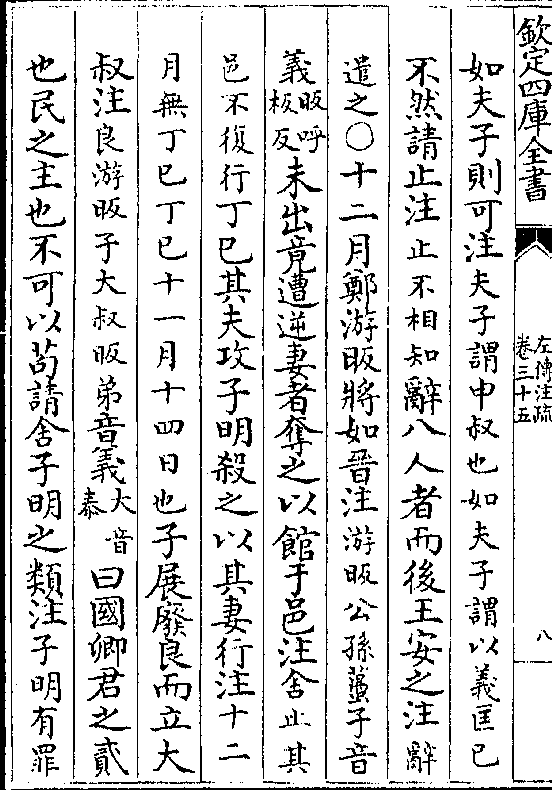 欽定四庫全書
左傳注疏
卷三十五
八
如夫子則可注夫子謂申叔也如夫子謂以義匡已
不然請止注止不相知辭八人者而後王安之注辭
遣之○十二月鄭游昄將如晉注游昄公孫蠆子音
義昄呼板反未出竟遭逆妻者奪之以館于邑注舍止其
邑不復行丁巳其夫攻子明殺之以其妻行注十二
月無丁巳丁巳十一月十四日也子展廢良而立大
叔注良游昄子大叔昄弟音義大音泰曰國卿君之貳
也民之主也不可以苟請舍子明之類注子明有罪